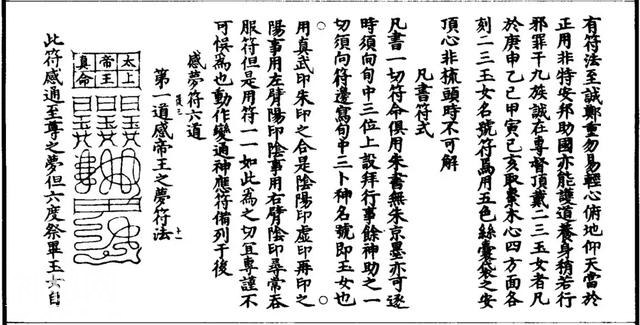 有符法至誠鄭重勿易輕心俯地仰天當於
正用非特安邦助國亦能護道養身稍若行
邪罪干九族誠在專督頂戴二三玉女者凡
於庚申乙巳甲寅己亥取棗木心四方面各
刻二三玉女名號符萬用五色絲囊袋之安
頂心非梳頭時不可解
凡書符式
凡書一切符命俱用朱書無朱京墨亦可逐
時須向旬中三位上設拜行事餘神助之一
切須向符邊寫旬中三卜神名號即玉女也
用真武印朱印之合是陰陽印虛印再印之
陽事用左臂陽印陰事用右臂陰印尋常吞
服符但是用符一一如此為之切宜專謹不
可悞為也動作變通神應符備列于後
感夢符六道
第一道感帝王之夢符法
太上
帝王
真命
此符感通至尊之夢但六度祭畢玉女自